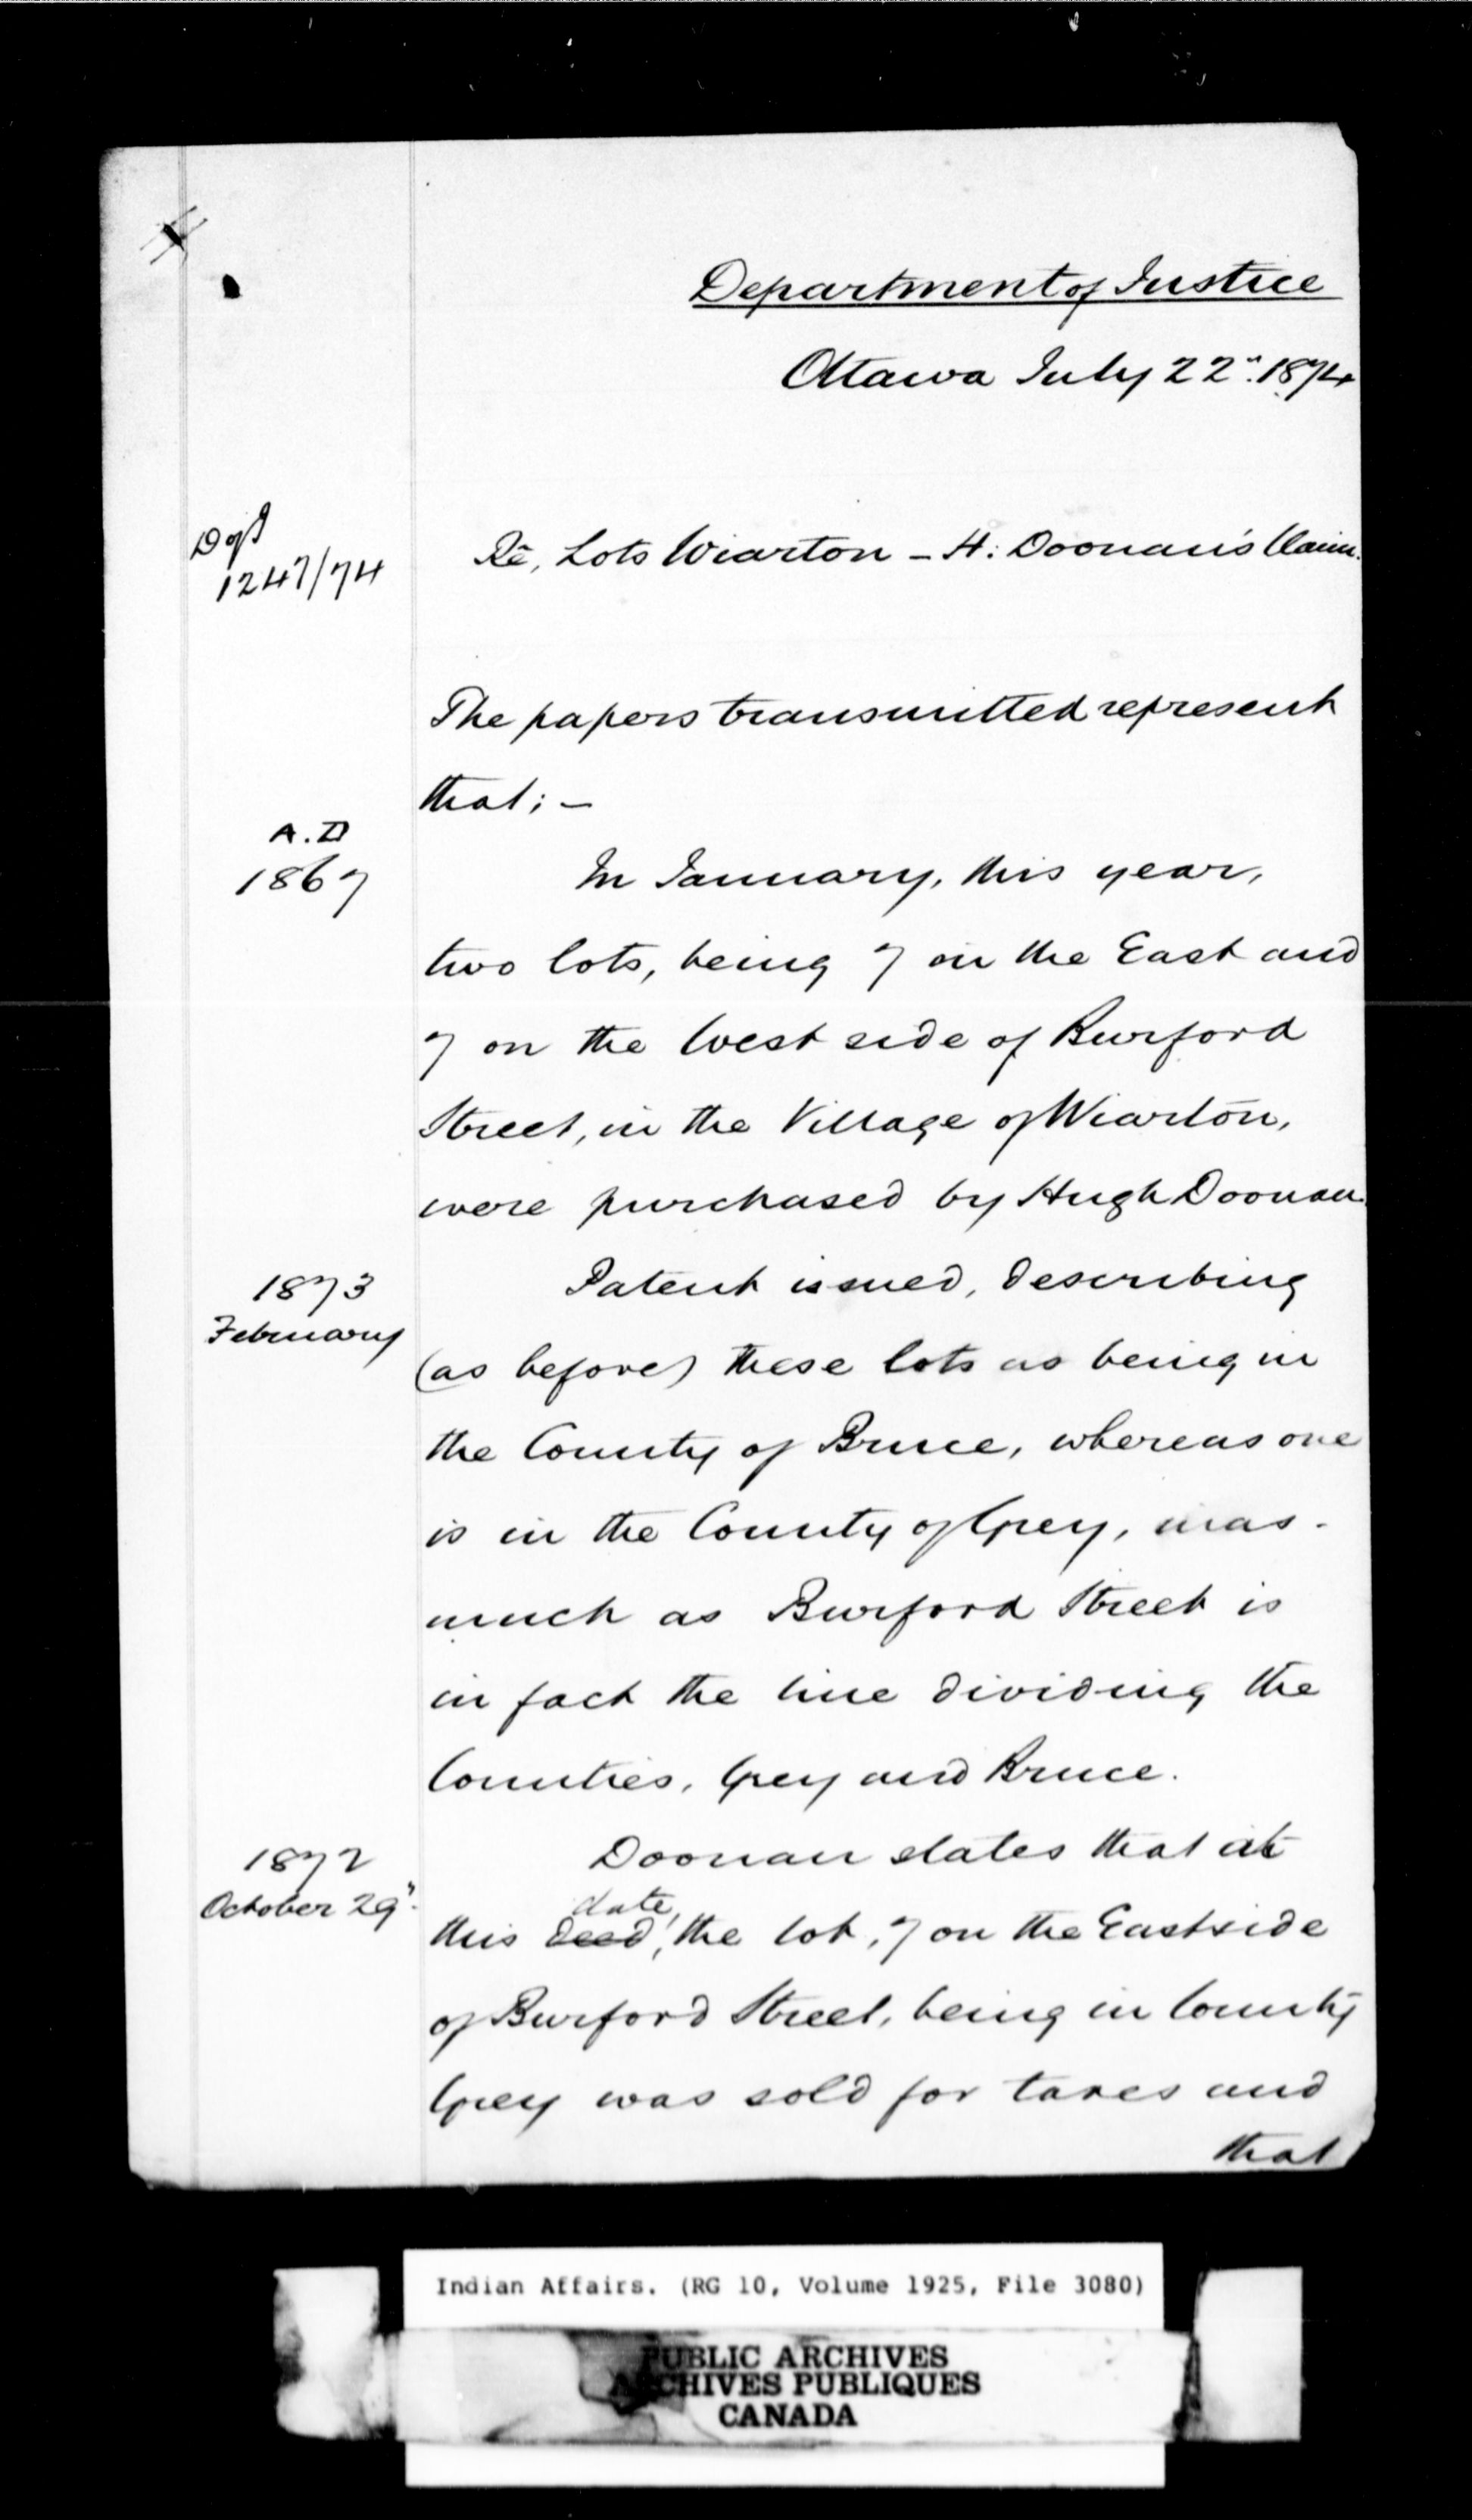 Department of Justice
Ottawa July 22". 1874
D of J
1247/74
Re, Lots Wiarton – H: Doonan's Claim.
The papers transmitted represent
that; –
A.D
1867
In January, this year,
two lots, being 7 on the East and
7 on the West side of Burford
Street, in the Village of Wiarton,
were purchased by Hugh Doonan.
1873
February
Patent issued, describing
(as before) these lots as being in
the County of Bruce, whereas one
is in the County of Grey, inas-
much as Burford Street is
in fact the line dividing the
Counties, Grey and Bruce.
1872
October 29".
Doonan states that at
date,
this deed, the lot, 7 on the East side
of Burford Street, being in County
Grey was sold for taxes and
that
Indian Affairs. (RG 10, Volume 1925, File 3080)
PUBLIC ARCHIVES
ARCHIVES PUBLIQUES
CANADA